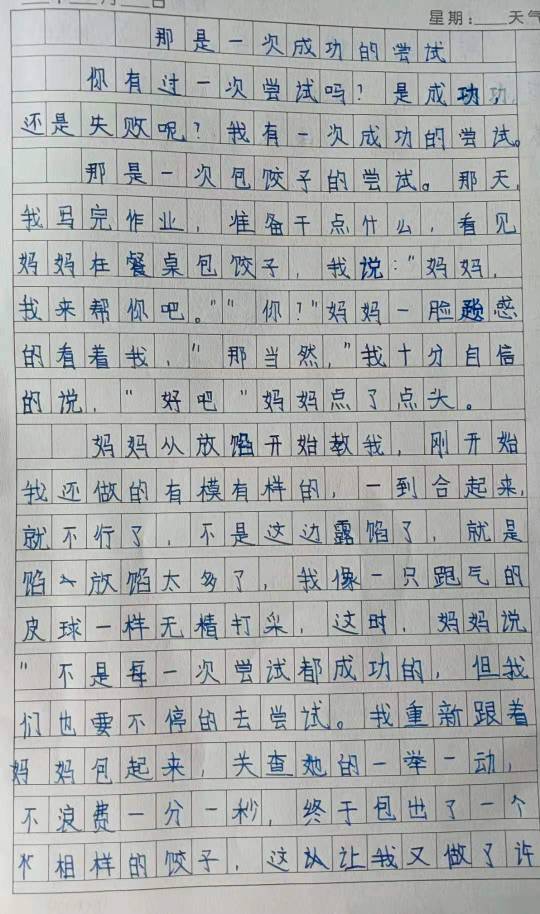 年 月 日
星期： 天气
那是一次成功的尝试
你有过一次尝试吗？是成功
还是失败呢？我有一次成功的尝试。
那是一次包饺子的尝试。那天，
我写完作业，准备干点什么，看见
妈妈在餐桌包饺子，我说：“妈妈，
我来帮你吧。”“你？”妈妈一脸疑惑
的看着我，“那当然，”我十分自信
的说，“好吧”妈妈点了点头。
妈妈从放馅开始教我，刚开始
我还做的有模有样的，一到合起来，
就不行了，不是这边露馅了，就是
馅放馅太多了，我像一只跑气的
皮球一样无精打采，这时，妈妈说
“不是每一次尝试都成功的，但我
们也要不停的去尝试。我重新跟着
妈妈包起来，关查她的一举一动，
不浪费一分一秒，终于包出了一个
相样的饺子，这次让我又做了许